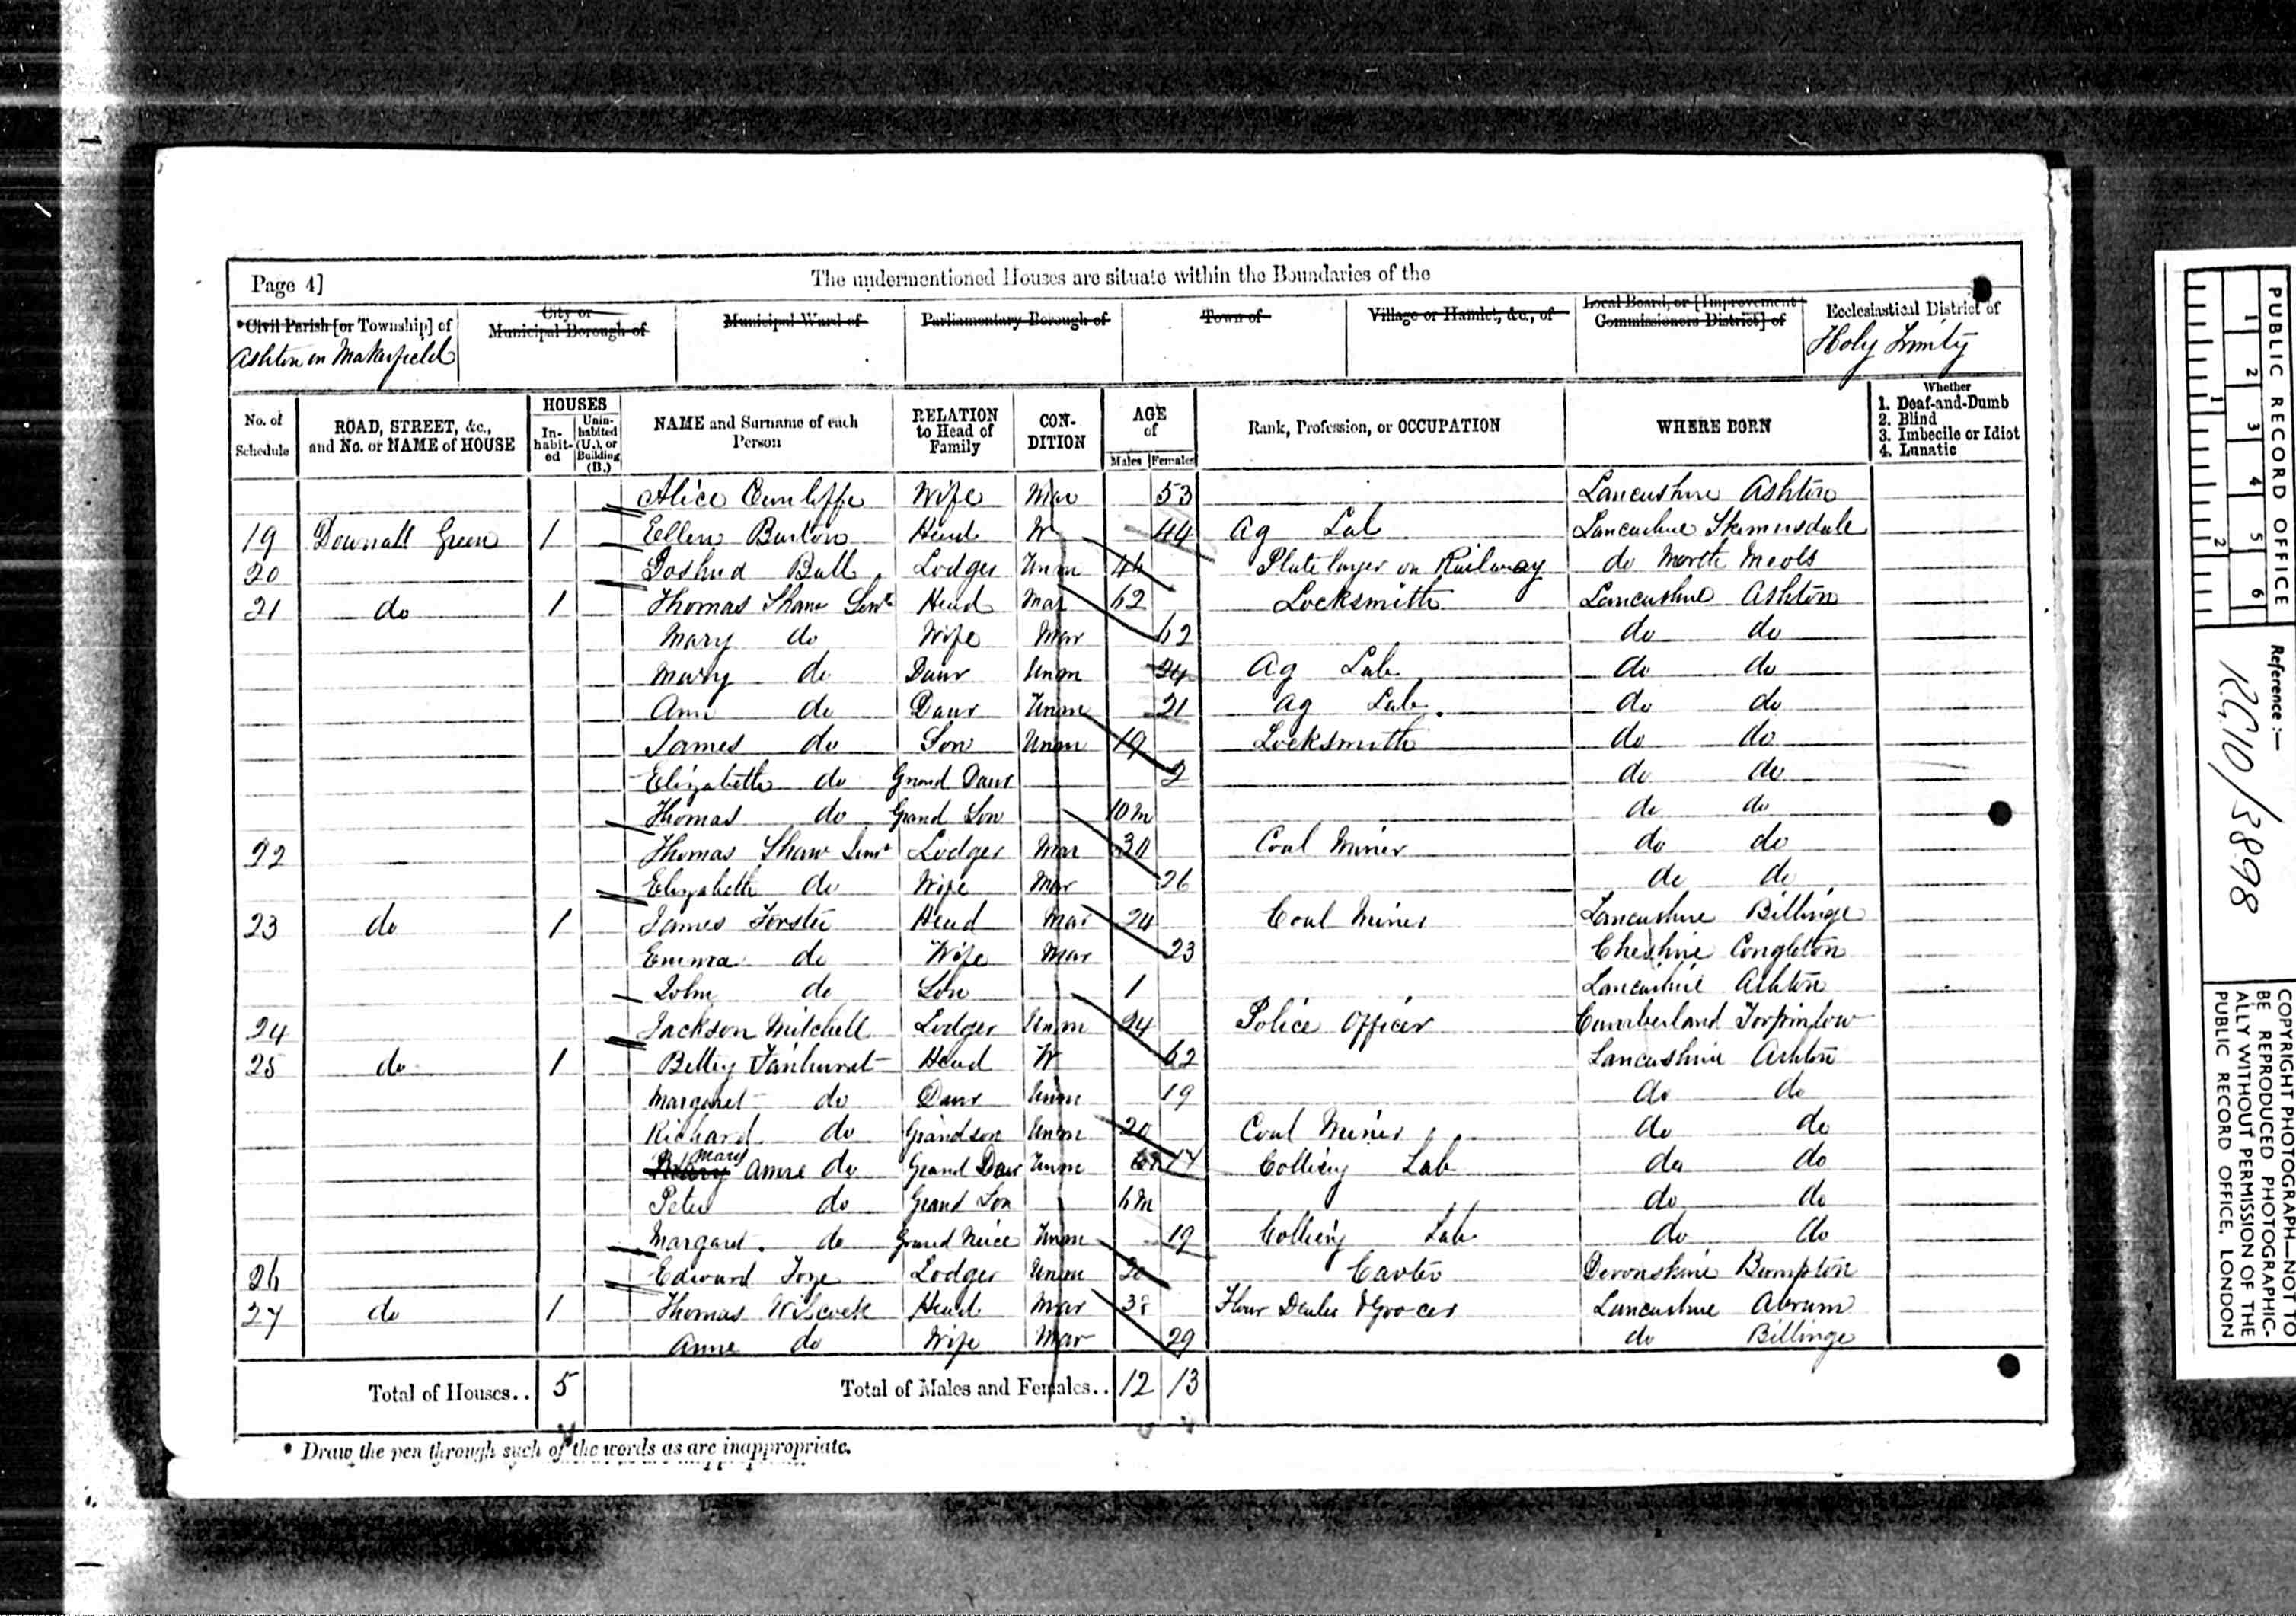 Page 4] The undermentioned Houses are situate within the Boundaries of the
*Civil Parish [or Township] of City or Municipal Borough of Municipal Ward of Parliamentary Borough of Town of Village or Hamlet, &c., of Local Board, or [Improvement Commissioners District] of Ecclesiastical District of
Ashton in Makerfield Holy Trinity
No. of Schedule ROAD, STREET, &c., and No. or NAME of HOUSE HOUSES In-habit-ed Unin-habited (U.), or Building (B.) NAME and Surname of each Person RELATION to Head of Family CON-DITION AGE of Males Females Rank, Profession, or OCCUPATION WHERE BORN Whether 1. Deaf-and-Dumb 2. Blind 3. Imbecile or Idiot 4. Lunatic
Alice Cunliffe Wife Mar 53 Lancashire Ashton
19 Downall Green 1 Ellen Burton Head W 44 Ag Lab Lancashire Skemersdale
20 Joshua Ball Lodger Unm 44 Plate layer on Railway do North Meols
21 do 1 Thomas Shaw Senr Head Mar 62 Locksmith Lancashire Ashton
Mary do Wife Mar 62 do do
Mary do Daur Unm 24 Ag Lab do do
Ann do Daur Unm 21 Ag Lab. do do
James do Son Unm 19 Locksmith do do
Elizabeth do Grand Daur 2 do do
Thomas do Grand Son 10m do do
22 Thomas Shaw Junr Lodger Mar 30 Coal Miner do do
Elizabeth do Wife Mar 26 do do
23 do 1 James Forster Head Mar 24 Coal Miner Lancashire Billinge
Emma do Wife Mar 23 Cheshire Congleton
John do Son 1 Lancashire Ashton
24 Jackson Mitchell Lodger Unm 24 Police Officer Cumberland
25 do 1 Bettey Fairhurst Head W 62 Lancashire Ashton
Margaret do Daur Unm 19 do do
Richard do Grandson Unm 20 Coal Miner do do
Mary Anne do Grand Daur Unm 17 Colliery Lab do do
Peter do Grand Son 6m do do
Margaret do Grand Neice Unm 19 Colliery Lab do do
26 Edward Lodger Unm 20 Carter Devonshire Bampton
27 do 1 Thomas Wilcock Head Mar 38 Flour Dealer & Grocer Lancashire Abram
Anne do Wife Mar 29 do Billinge
Total of Houses.. 5 Total of Males and Females.. 12 13
* Draw the pen through such of the words as are inappropriate.
PUBLIC RECORD OFFICE
1 2 3 4 5 6
1 2
Reference :—
RG10/3898
COPYRIGHT PHOTOGRAPH—NOT TO
BE REPRODUCED PHOTOGRAPHIC-
ALLY WITHOUT PERMISSION OF THE
PUBLIC RECORD OFFICE, LONDON